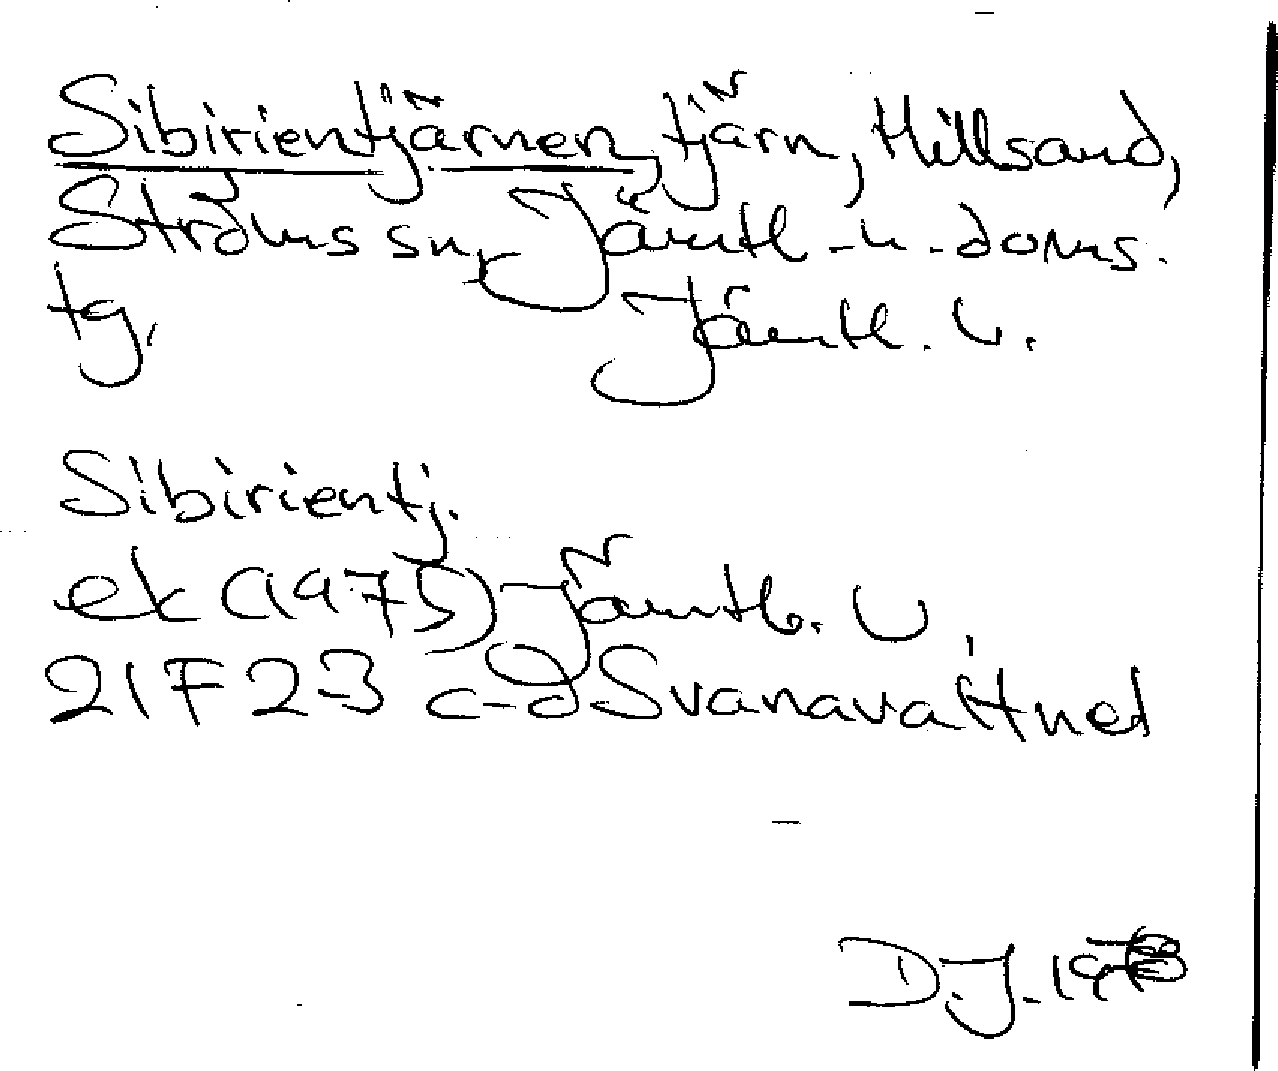 Sibirientjärnen, tjärn, Hillsand,
Ströms sn, Jämtl. n. doms.
tg,
Jämtl. l.
Sibirientj.
ek (1975) Jämtl. l.
21F 23 c-d Svanavattnet
D.J. 19